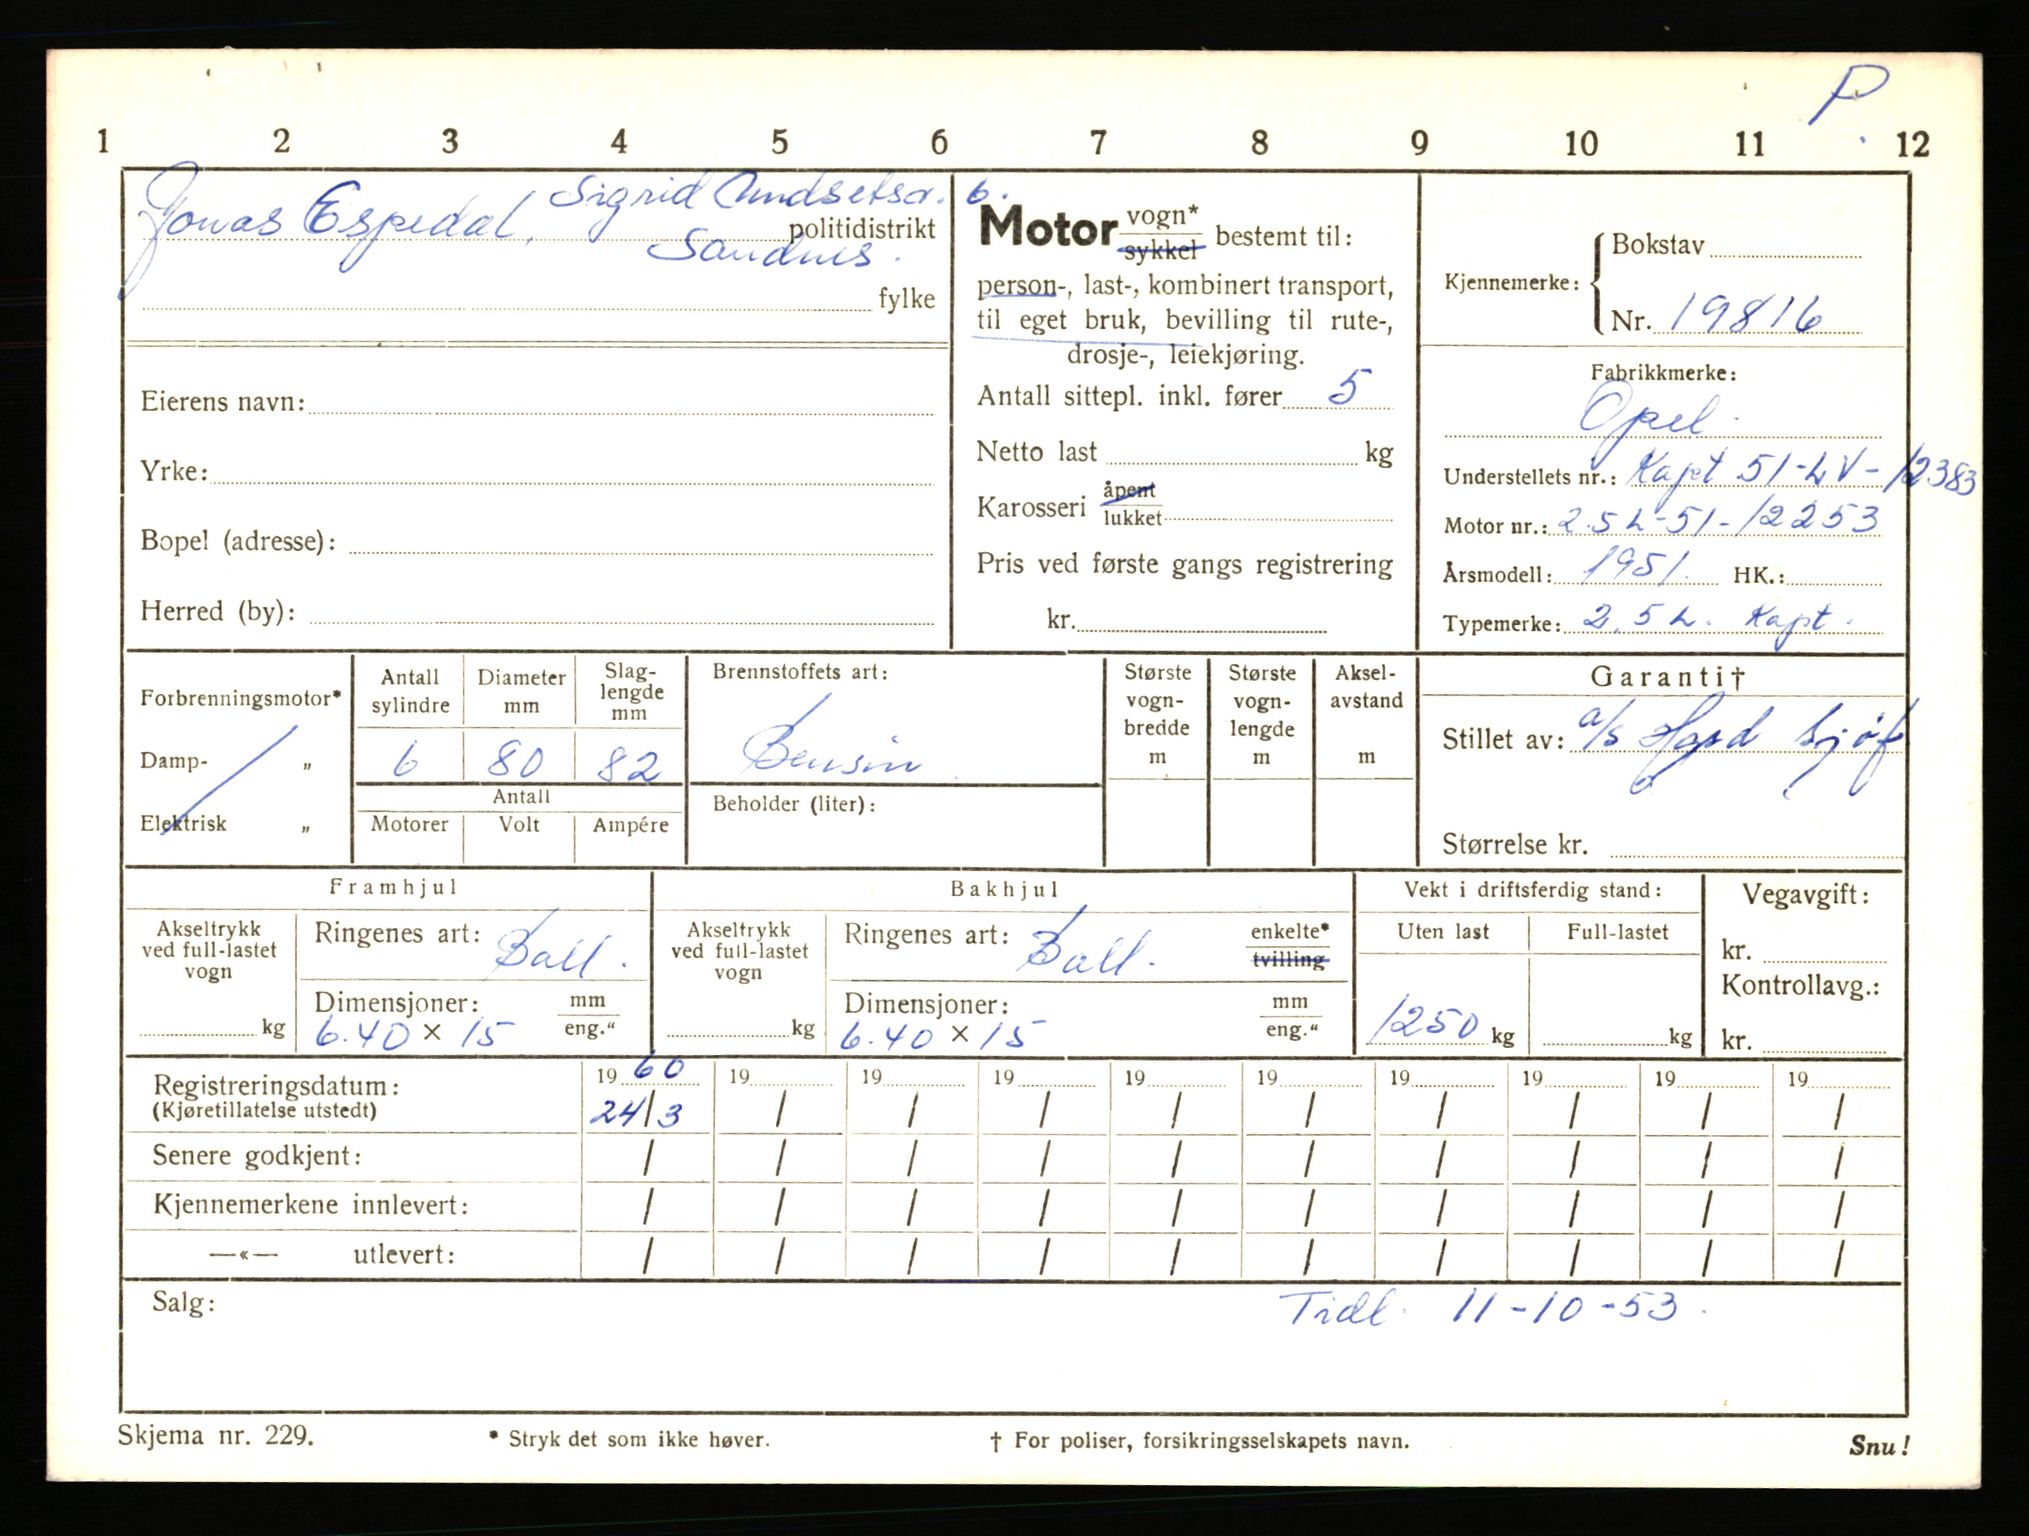 P
1 2 3 4 5 6 7 8 9 10 11 12
Jonas Espedal, Sigrid Undsetsv. 6.
politidistrikt
Sandnes.
fylke
Eierens navn:
Yrke:
Bopel (adresse):
Herred (by):
Motor vogn* sykkel bestemt til:
person-, last-, kombinert transport,
til eget bruk, bevilling til rute-,
drosje-, leiekjøring.
Antall sittepl. inkl. fører 5
Netto last kg
Karosseri åpent lukket
Pris ved første gangs registrering
kr.
Kjennemerke: Bokstav
Nr. 19816
Fabrikkmerke:
Opel.
Understellets nr.: Kapt 51-LV-12383
Motor nr.: 2.5L-51-12253
Årsmodell: 1951. HK.:
Typemerke: 2.5L. Kapt.
Forbrenningsmotor*
Damp- „
Elektrisk „
Antall sylindre
Diameter mm
Slag-lengde mm
6 80 82
Antall
Motorer Volt Ampére
Brennstoffets art:
Bensin
Beholder (liter):
Største vogn-bredde m
Største vogn-lengde m
Aksel-avstand m
Garanti†
Stillet av: a/s Sjøf
Størrelse kr.
Framhjul
Akseltrykk ved full-lastet vogn
kg
Ringenes art: Ball.
Dimensjoner: mm eng."
6.40 × 15
Bakhjul
Akseltrykk ved full-lastet vogn
kg
Ringenes art: Ball. enkelte* tvilling
Dimensjoner: mm eng."
6.40 × 15
Vekt i driftsferdig stand:
Uten last Full-lastet
1250 kg kg
Vegavgift:
kr.
Kontrollavg.:
kr.
Registreringsdatum: 1960 19 19 19 19 19 19 19 19 19
(Kjøretillatelse utstedt) 24/3 / / / / / / / / /
Senere godkjent: / / / / / / / / / /
Kjennemerkene innlevert: / / / / / / / / / /
—«— utlevert: / / / / / / / / / /
Salg: Tidl. 11-10-53.
Skjema nr. 229. * Stryk det som ikke høver. † For poliser, forsikringsselskapets navn. Snu!